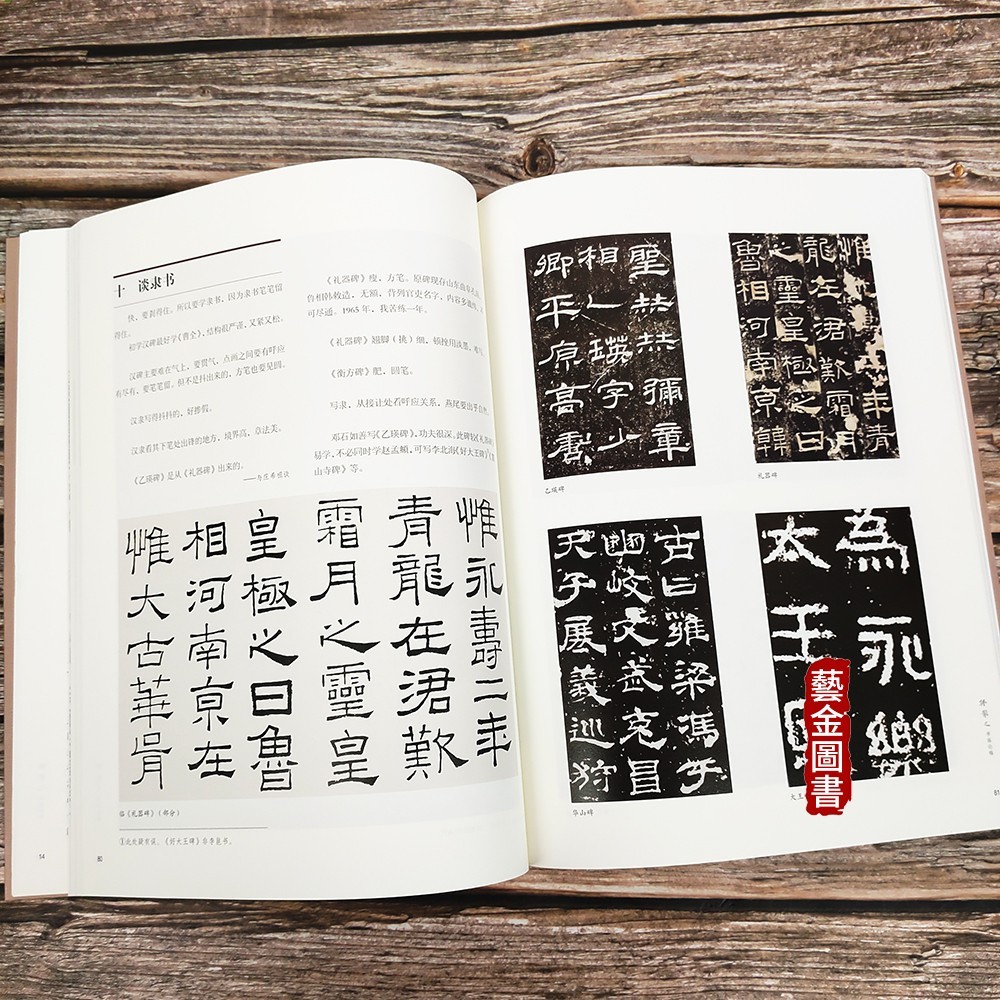 十 谈隶书
快、要刹得住。所以要学隶书，因为隶书笔笔留
得住。
初学汉碑最好学《曹全》，结构很严谨，又紧又松。
汉碑主要难在气上，要贯气，点画之间要有呼应
有尽有，要笔笔留。但不是抖出来的，方笔也要见圆。
汉隶写得抖抖的，好掺假。
汉隶看其下笔处出锋的地方，境界高，章法美。
《乙瑛碑》是从《礼器碑》出来的。
——与庄希祖谈
《礼器碑》瘦，方笔。原碑现存山东曲阜孔庙，
鲁相韩敕造，无额，背列官史名字，内容多
可尽通。1965年，我苦练一年。
《礼器碑》翘脚（挑）细，顿挫用淡墨，难写
《衡方碑》肥，圆笔。
写隶，从接让处看呼应关系，燕尾要出乎自然。
邓石如善写《乙瑛碑》，功夫很深。此碑较《礼器碑》
易学，不必同时学赵孟頫，可写李北海《好大王碑》
山寺碑》等。
惟永寿二年
青龍在涒歎
霜月之靈皇
皇極之日魯
相河南京在
惟大古華胥
临《礼器碑》（部分）
①此处疑有误，《好大王碑》非李邕书。
14
80
聖赫赫彌章
相乙瑛字少
卿平原高唐
乙瑛碑
惟
青
龍在涒歎
霜月
之靈皇極之日
魯相河南京韓
礼器碑
古曰雍梁馮于
豳岐文武克昌
天子展義巡狩
华山碑
為永樂
太王
大王
81
藝金圖書